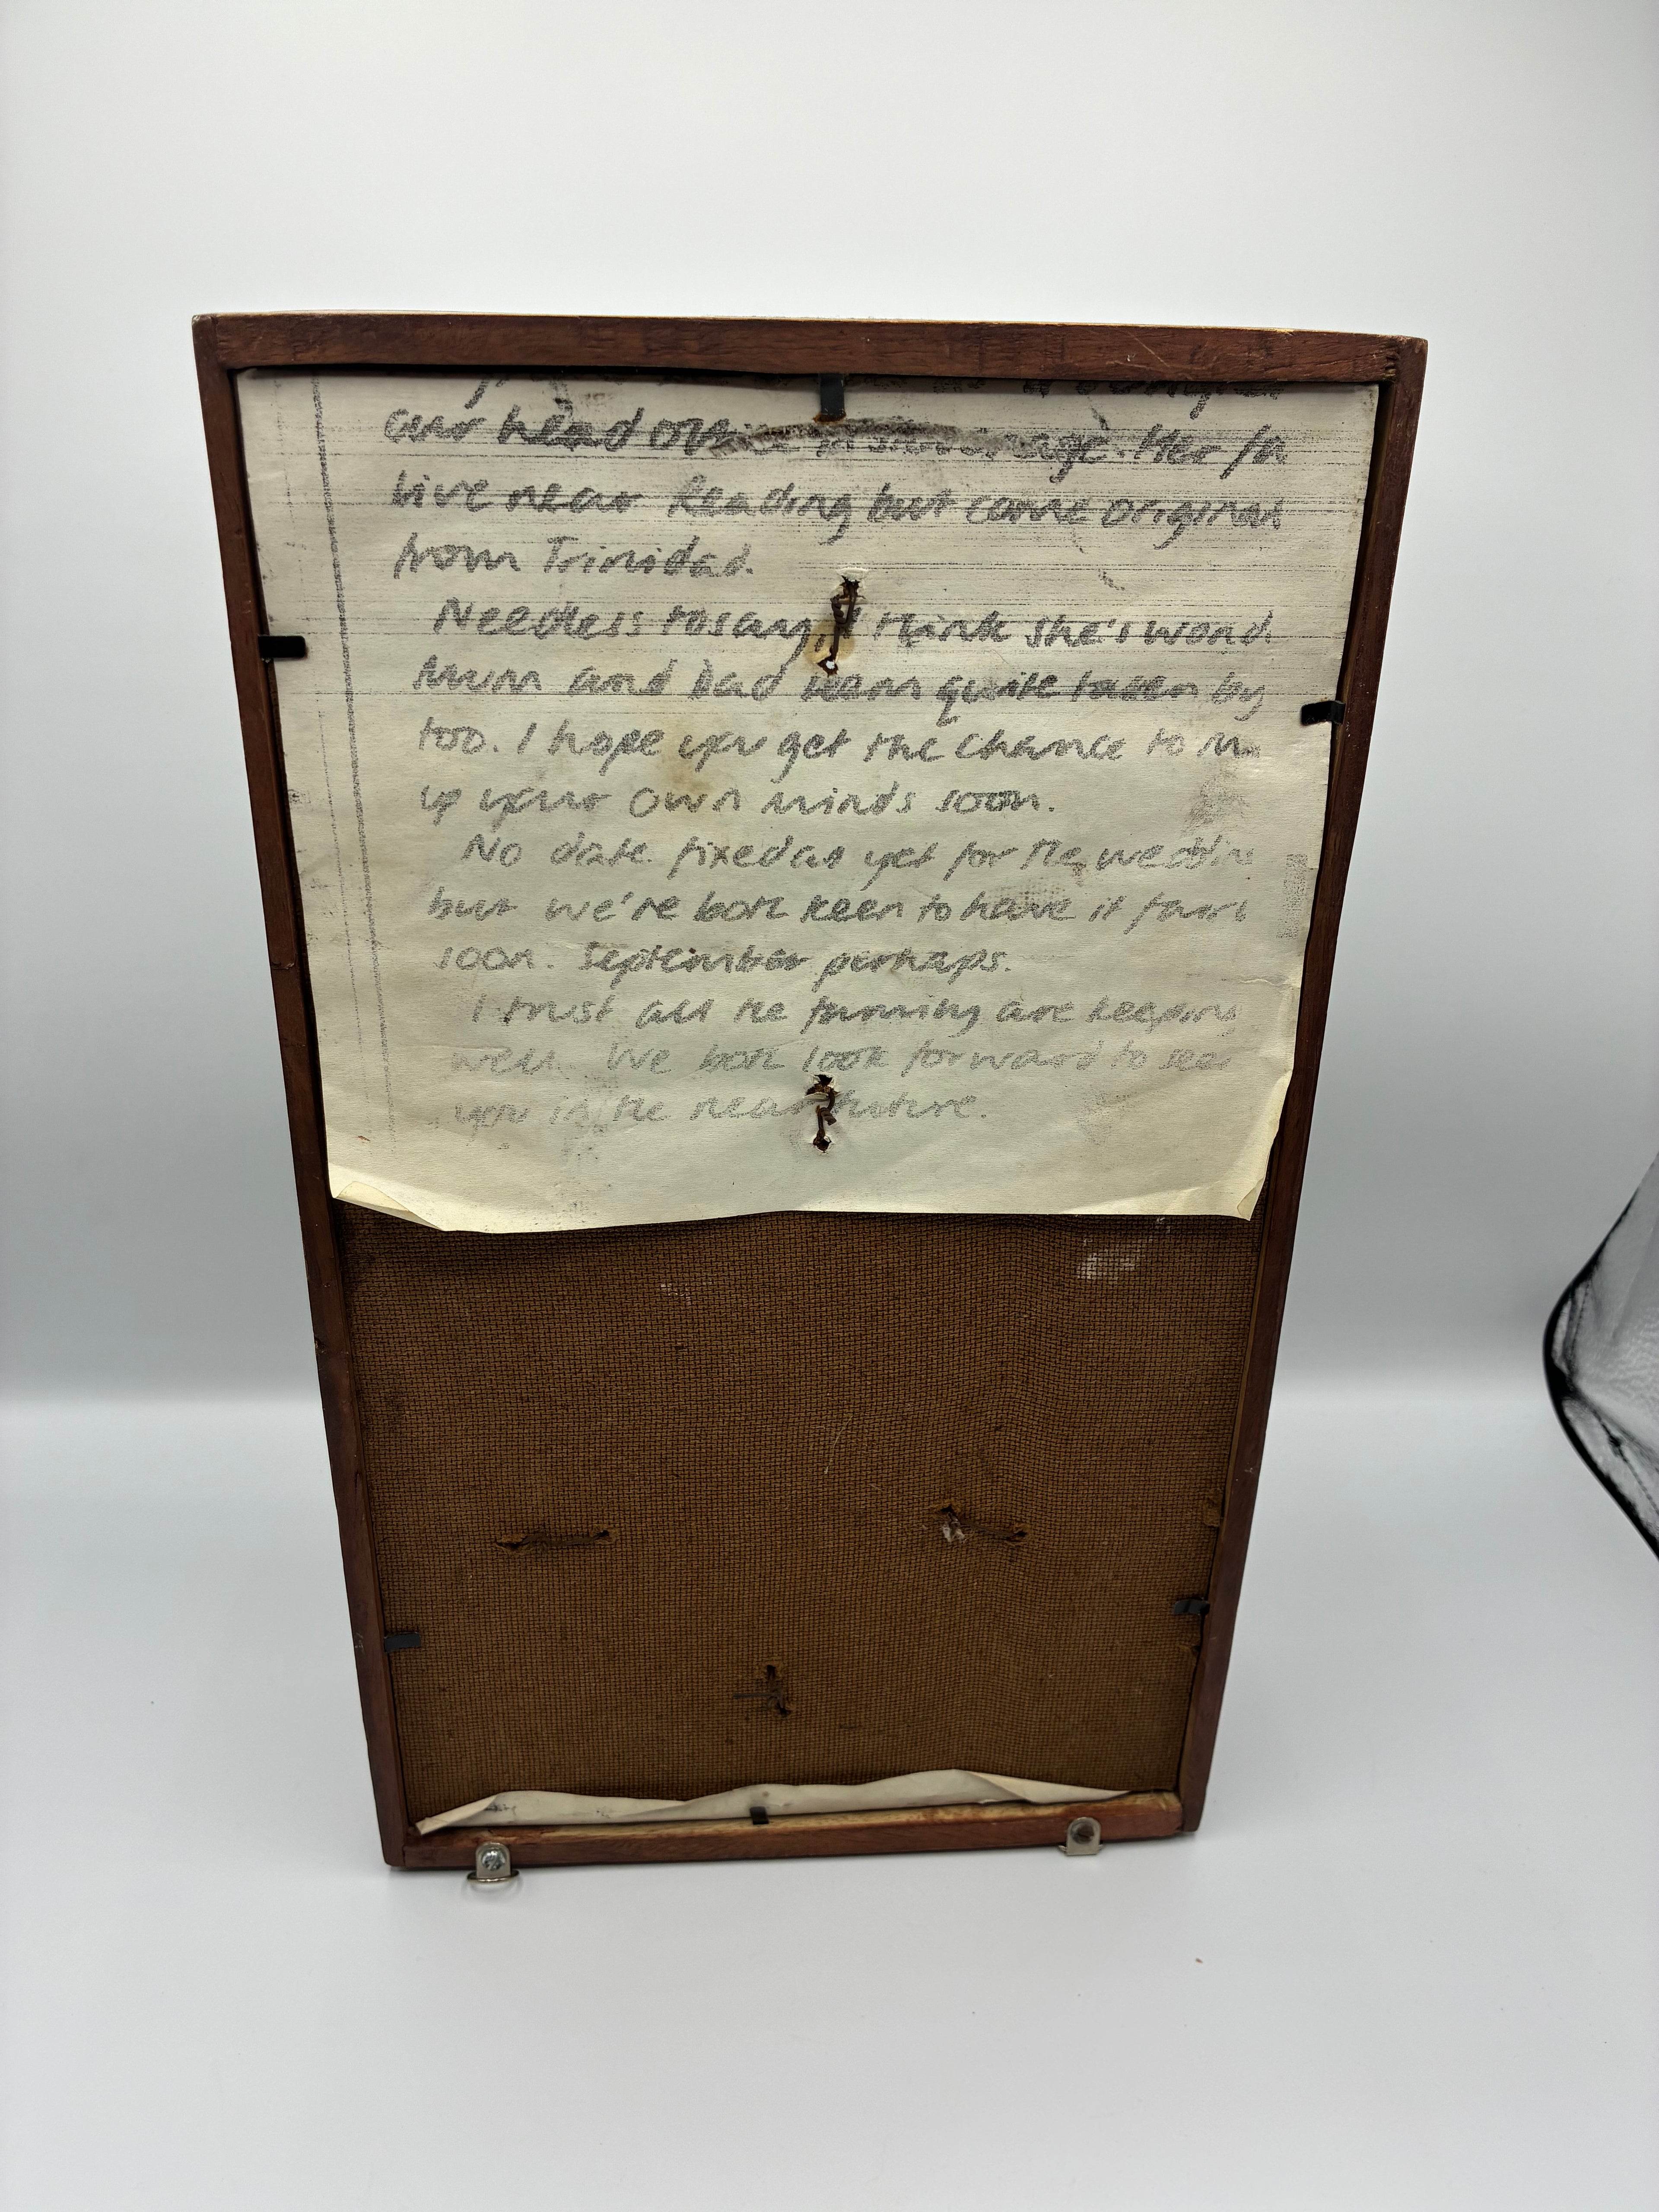 our head office in
age. Her
live near Reading but come original
from Trinidad.
Needless to say, I think she's wond
Mum and Dad seem quite taken by
too. I hope you get the chance to m
up your own minds soon.
No date fixed as yet for the weddin
but we're both keen to have it fairl
soon. September perhaps.
I trust all the family are keeping
well. We both look forward to seei
you in the near future.